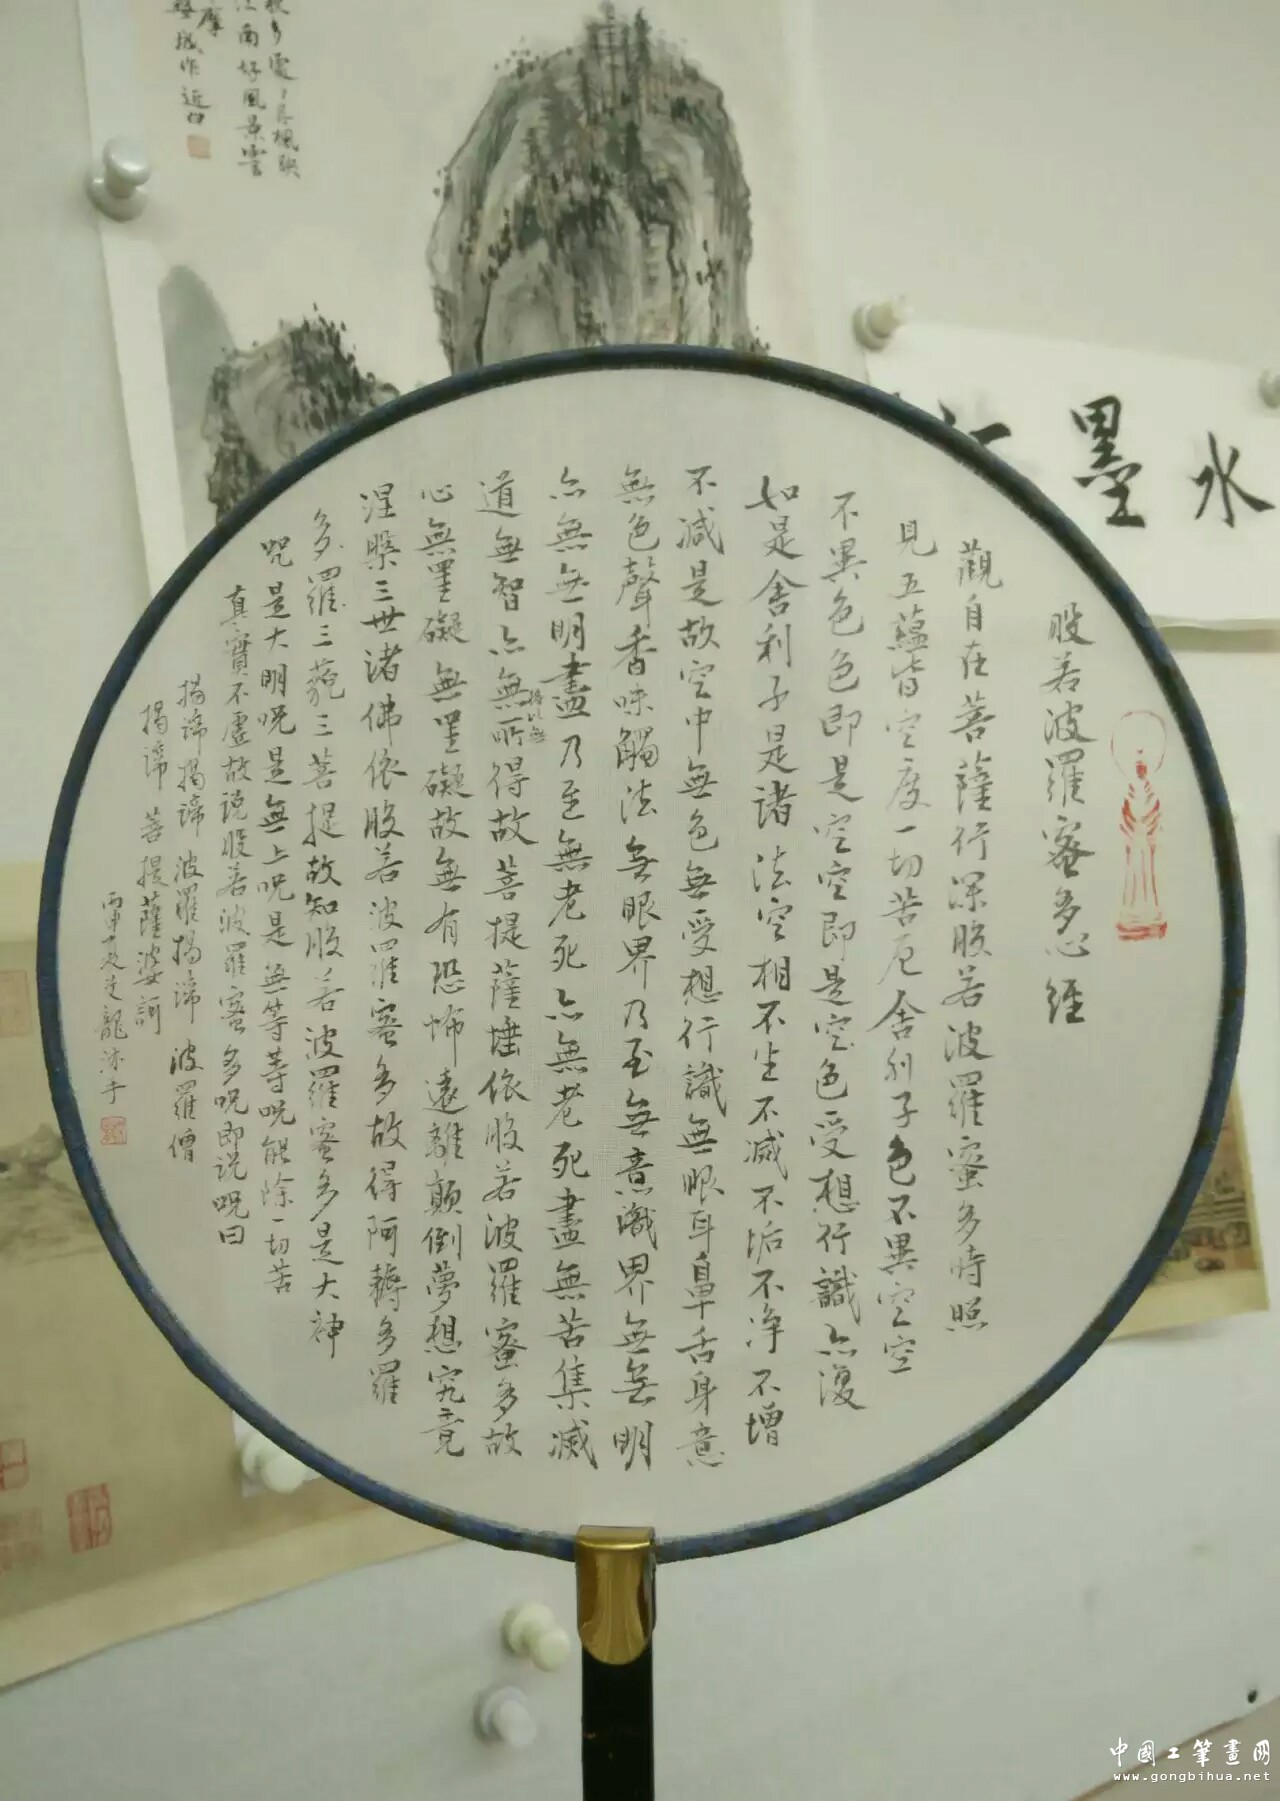 般若波羅蜜多心經
觀自在菩薩行深般若波羅蜜多時照
見五蘊皆空度一切苦厄舍利子色不異空空
不異色色即是空空即是空色受想行識亦復
如是舍利子是諸法空相不生不滅不垢不净不增
不減是故空中無色無受想行識無眼耳鼻舌身意
無色聲香味觸法無眼界乃至無意識界無無明
亦無無明盡乃至無老死亦無老死盡無苦集滅
道無智亦無所得故菩提薩埵依般若波羅蜜多故
得以無
心無罣礙無罣礙故無有恐怖遠離顛倒夢想究竟
涅槃三世諸佛依般若波羅蜜多故得阿耨多羅
多羅三藐三菩提故知般若波羅蜜多是大神
呪是大明呪是無上呪是無等等呪能除一切苦
真實不虛故说般若波羅蜜多呪即说呪曰
揭諦揭諦 波羅揭諦 波羅僧
揭諦 菩提薩婆訶
丙申夏 龍
水墨江
江南好風景
作近
中國工筆畫网
www.gongbihua.net